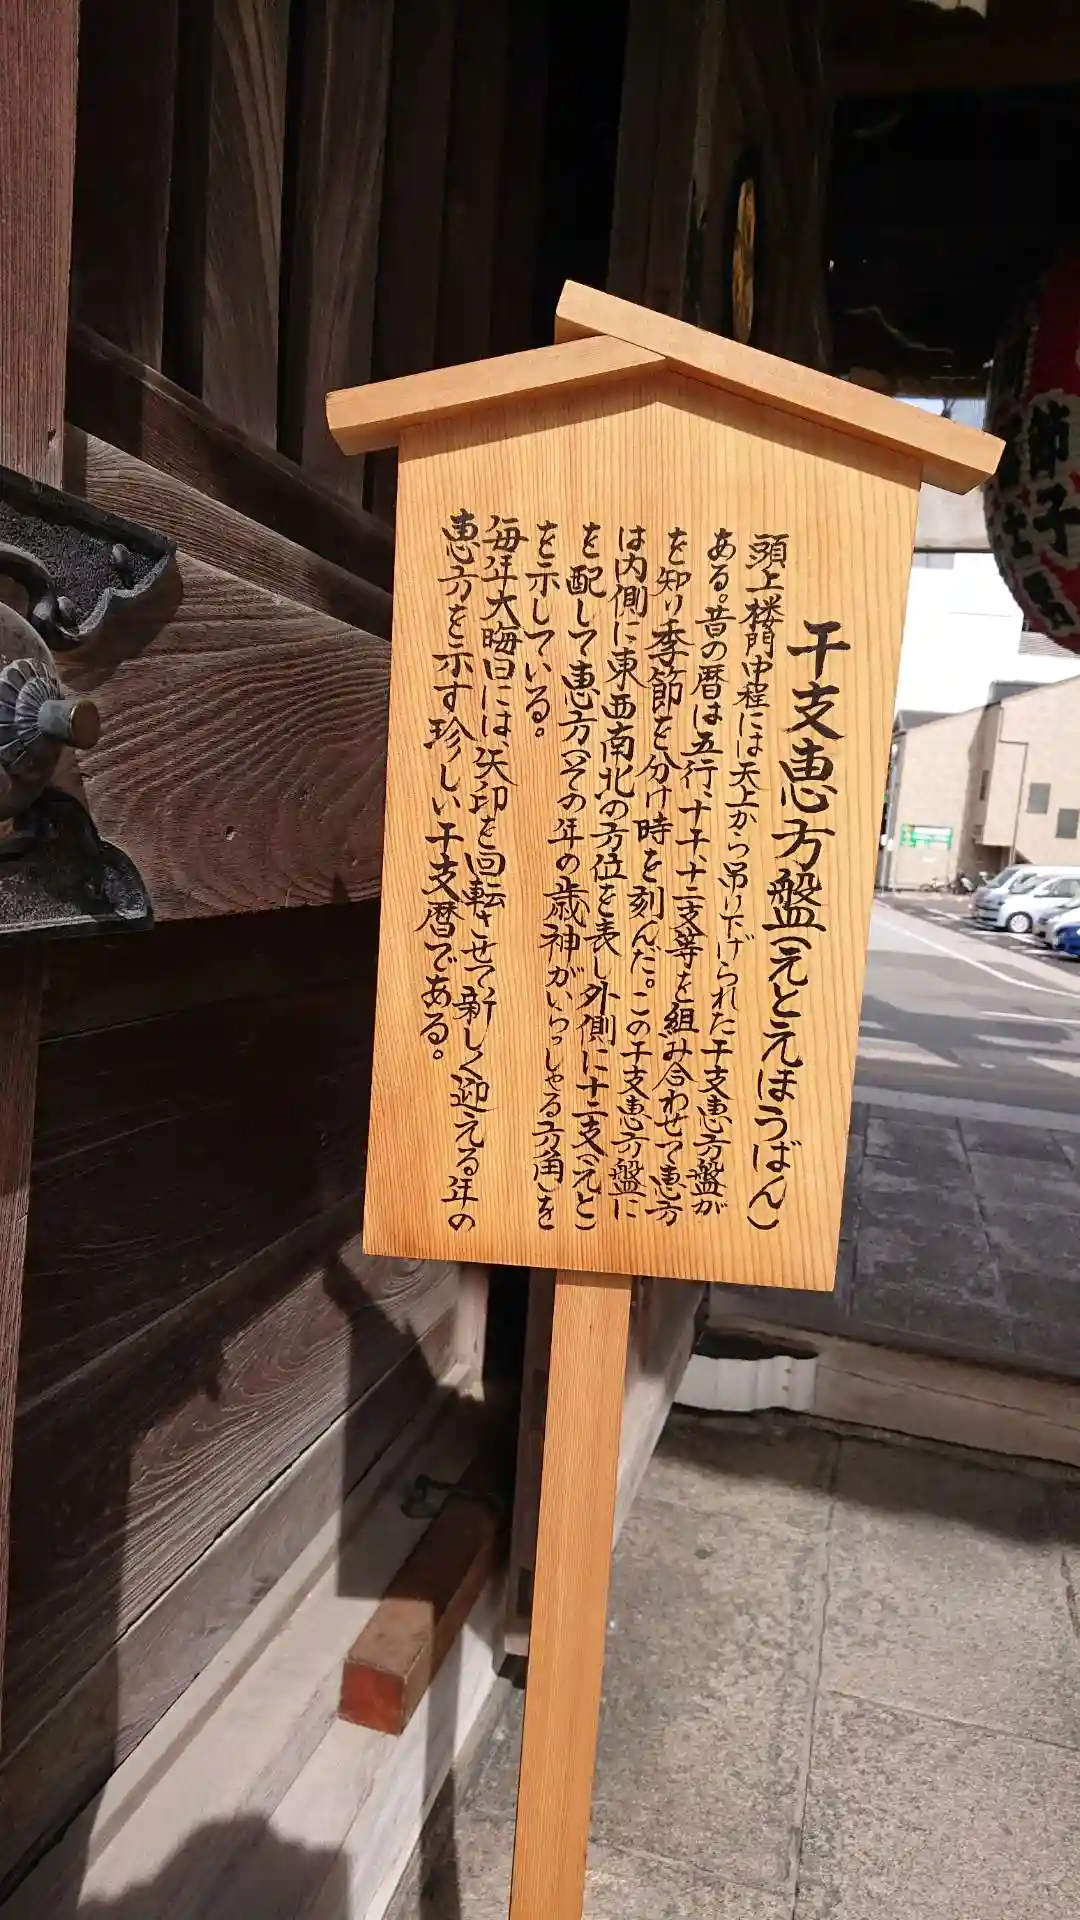 干支恵方盤(えとえほうばん)
頭上楼門中程には天上から吊り下げられた干支恵方盤が
ある。昔の暦は五行、十干、十二支等を組み合わせて恵方
を知り季節を分け時を刻んだ。この干支恵方盤に
は内側に東西南北の方位を表し外側に十二支(えと)
を配して恵方(その年の歳神がいらっしゃる方角)を
を示している。
毎年大晦日には、矢印を回転させて新しく迎える年の
恵方を示す珍しい干支暦である。
節子